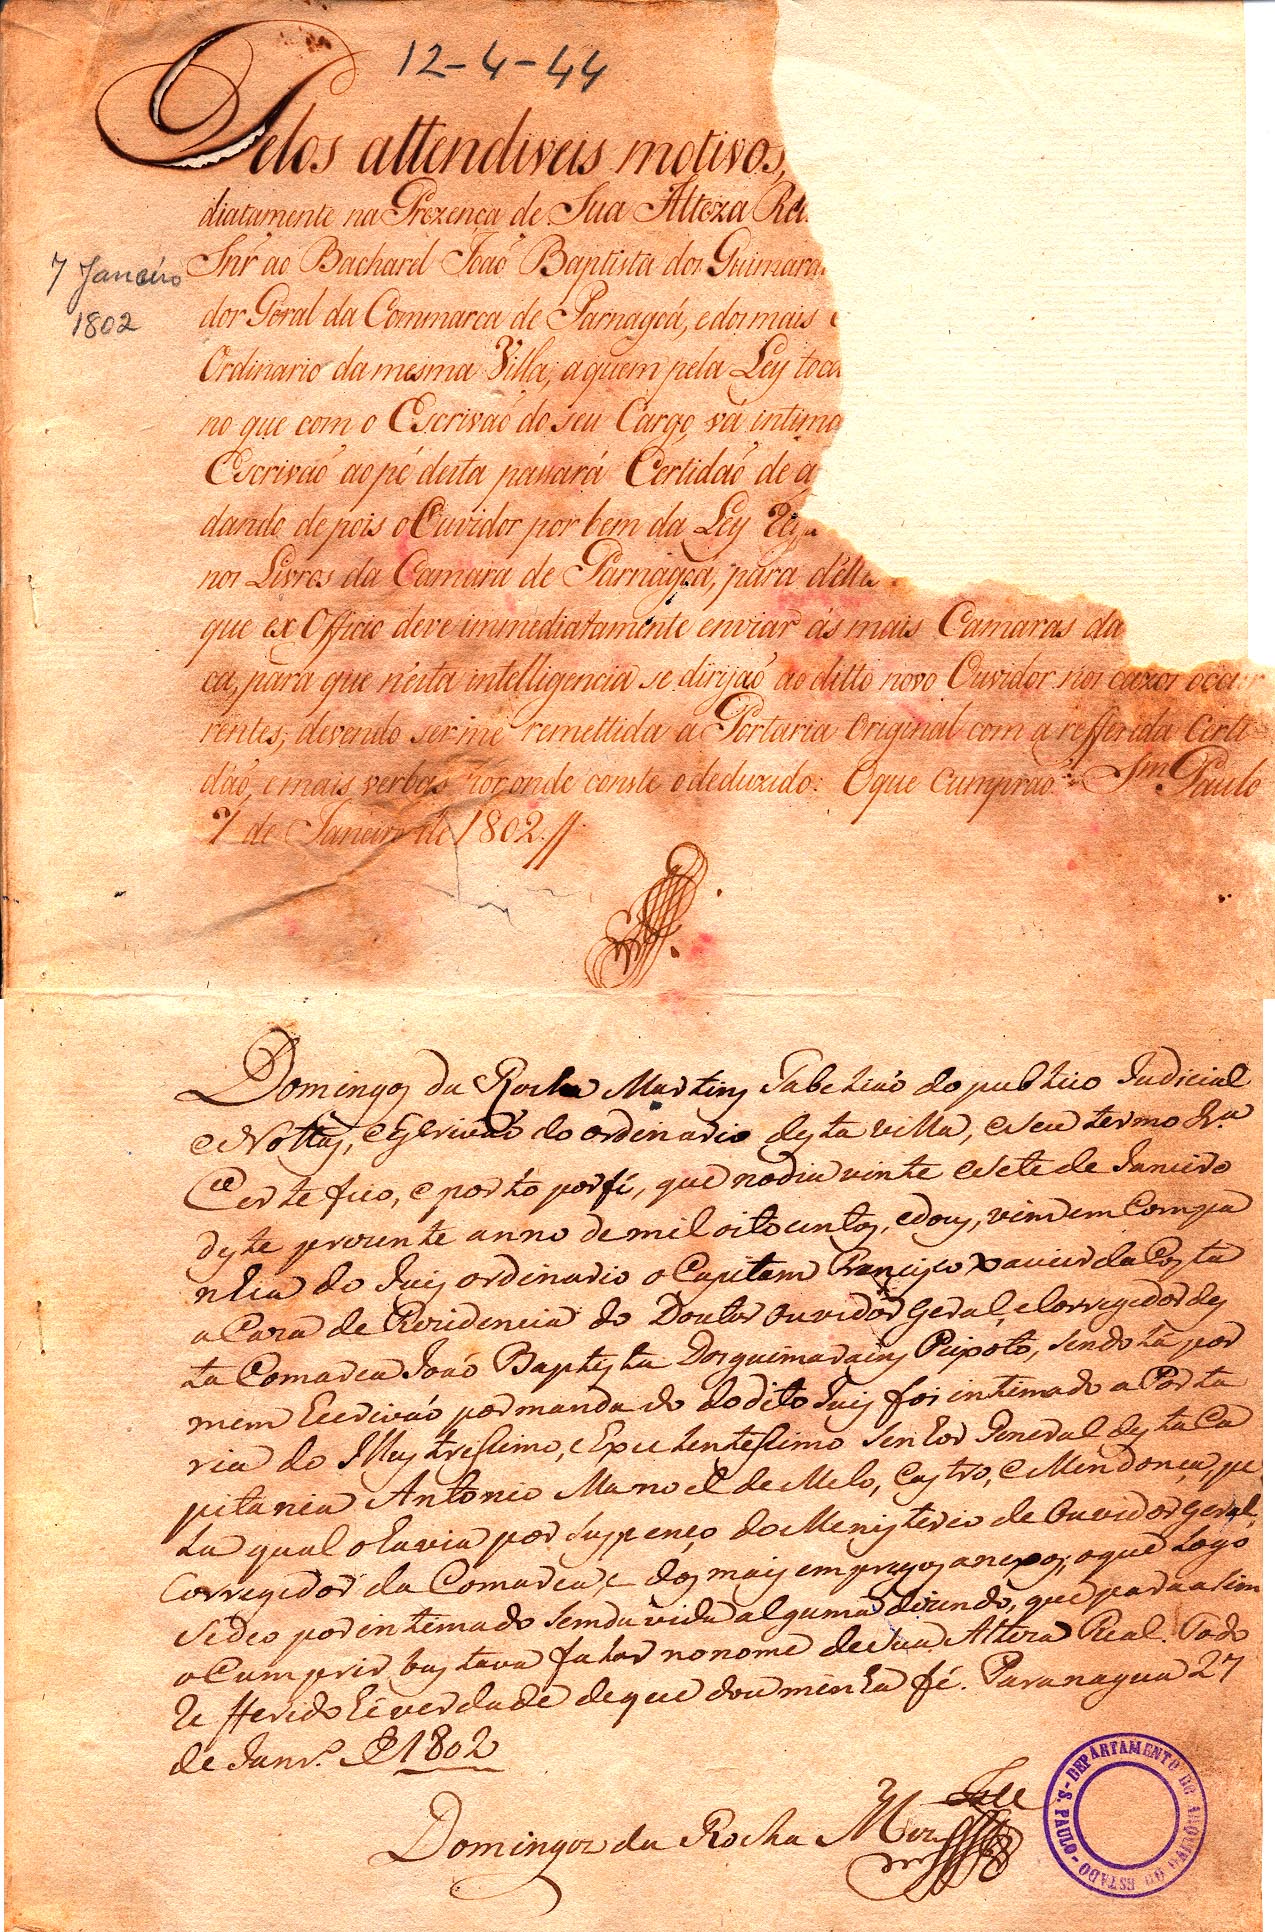 12-4-44
Pelos attendiveis motivos,
diatamente na Prezença de Sua Alteza
Snr ao Bacharel João Baptista dos Guimara
7 Janeiro
1802
dor Geral da Commarca de Parnagoá, e dos mais
Ordinario da mesma Villa, a quem pela Ley toca
no que com o Escrivaõ do seu Cargo, vá intima
Escrivaõ ao pé desta passará Certidaõ de
dando depois o Ouvidor por bem da Ley
nos Livros da Camara de Parnagoá, para
que ex Officio deve immediatamente enviar ás mais Camaras da
ca, para que n'esta intelligencia se dirijaõ ao ditto novo Ouvidor nos cazos occur
rentes, devendo serme remettida a Portaria Original com a refferida Certi
daõ, e mais verbas por onde conste o deduzido: O que cumpraõ. Sm Paulo
7 de Janeiro de 1802.//
Domingos da Rocha Martins Tabeliaó do publico Judicial
e Nottas, e Escrivaó do ordinario desta villa, e seu termo
Certefico, e porto por fé, que no dia vinte e sete de Janeiro
deste prezente anno de mil oito centos, e dous, vim em Compa
nhia do Juis ordinario o Capitam Francisco Xavier da Costa
a Caza de Rezidencia do Doutor ouvidor Geral, e Corregedor des
ta Comarca Joaó Baptista Dos guimaraens Peixoto, sendo lá por
mim Escrivaó por mandado do dito Juis foi intimado a Porta
ria do Illustrissimo, e Excelentessimo Senhor General desta Ca
pitania Antonio Manoel de Melo, Castro, e Mendonça, pe
la qual o havia por suspenço do Menisterio de ouvidor geral,
Corregedor da Comarca, e dos mais empregos anexos, o que logo
se deo por intimado sem duvida alguma dizendo, que para asim
o Cumprir bastava falar no nome de Sua Alteza Real. Todo
Refferido hé verdade de que dou minha fé. Paranagua 27
de Janr.º de 1802
Domingos da Rocha Miz
DEPARTAMENTO DO ARQUIVO DO ESTADO - S. PAULO -